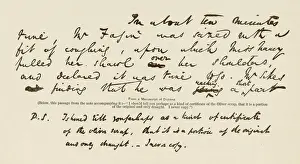 In about ten minutes
time, Mr Fagin was seized with a
fit of coughing, upon which Miss Nancy
pulled her shawl over her shoulders,
and declared it was time to go. Mr Sikes
finding that he was a part
FROM A MANUSCRIPT OF DICKENS
(Below, this passage from the note accompanying it:— "I should tell you perhaps as a kind of certificate of the Oliver scrap, that it is a portion
of the original and only draught. I never copy.")
P.S. I should tell you perhaps as a kind of certificate
of the Oliver scrap, that it is a portion of the original
and only draught. — I never copy.